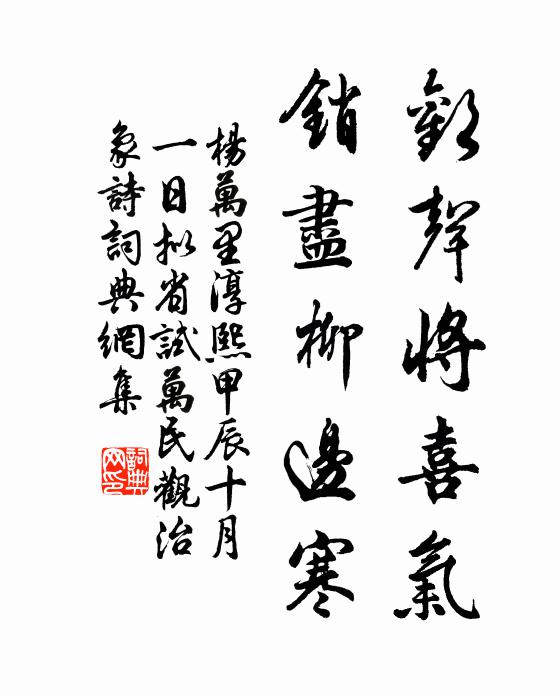 歡聲將喜氣
銷盡柳邊寒
楊萬里淳熙甲辰十月
一日擬省試萬民觀治
象詩詞典網集
詞典
网印